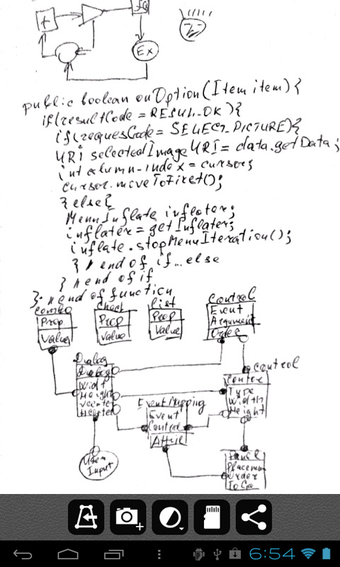 Ex
public boolean onOption(Item item){
if(resultCode = RESUL_OK){
if(requesCode = SELECT_PICTURE){
URI selectedImage URI = data.getData;
int column-index = cursor;
cursor.moveToFirst();
} else{
MenuInflate inflater;
inflater = getInflater;
inflate.stopMenuIteration();
} // end of if...else
} // end of if
}; // end of function
Combo
Check
List
Control
Prop
Value
Prop
Value
Prop
Value
Event
Argument
Order
Dialog
Dialog
Width
Height
Event Mapping
Event
Control
Attrib
Control
Type
Width
Height
User
Input
6:54